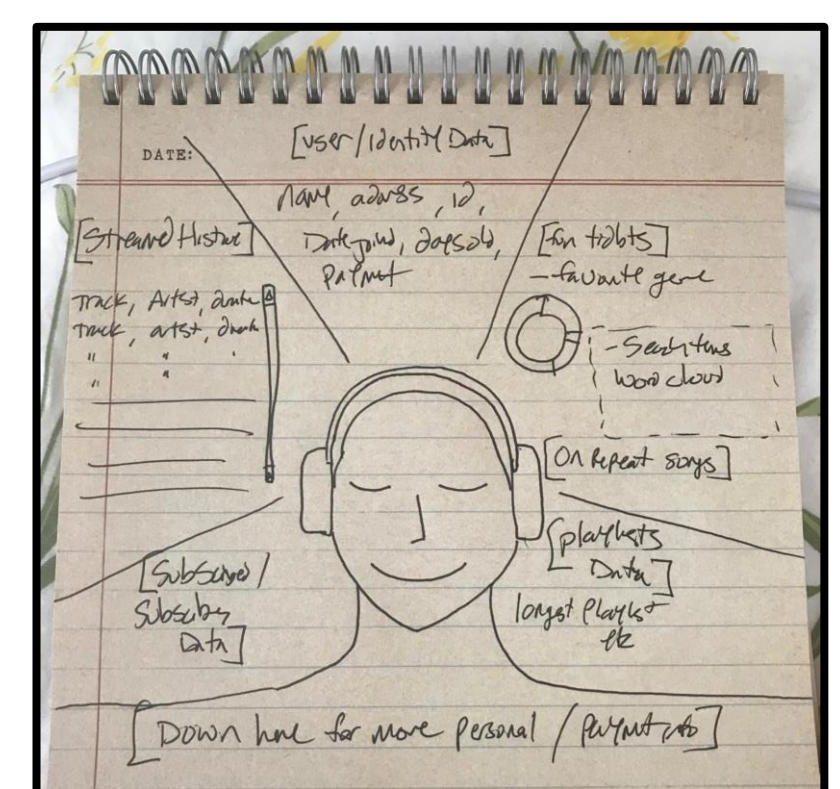 DATE:
[User/Identity Data]
name, address, id,
Date joined, days old,
Payment
[Streamed History]
Track, Artist, date
Track, artist, date
" " "
" "
[fun tidbits]
- favorite genre
- Search terms
Word cloud
[On Repeat songs]
[playlists
Data]
longest playlist
etc
[Subscribed /
Subscriber
Data]
[Down here for more personal / payment info]